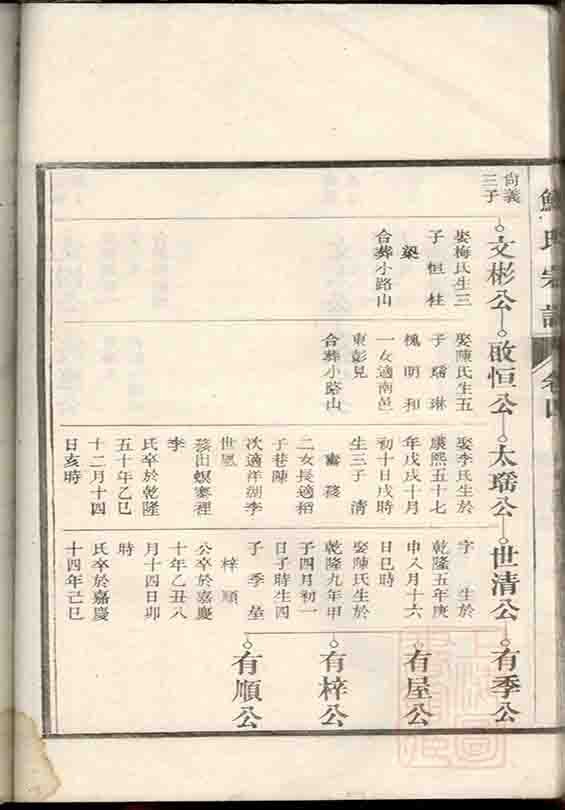 氏宗譜
卷四
尙義
三子
文彬公
娶梅氏生三
子 恒 桂
樂
合葬小路山
啟恒公
娶陳氏生五
子 琳
槐 明 和
一女適南邑
東彭見
合葬小路山
太瑤公
娶李氏生於
康熙五十七
年戊戌十月
初十日戌時
生三子 清
二女長適稻
子巷陳
次適洋湖李
世恩
李
氏卒於乾隆
五十年乙巳
十二月十四
日亥時
世清公
字 生於
乾隆五年庚
申八月十六
日巳時
娶陳氏生於
乾隆九年甲
子四月初一
日子時生四
子 季
梓 順
公卒於嘉慶
十年乙丑八
月十四日卯
時
氏卒於嘉慶
十四年己巳
有季公
有屋公
有梓公
有順公